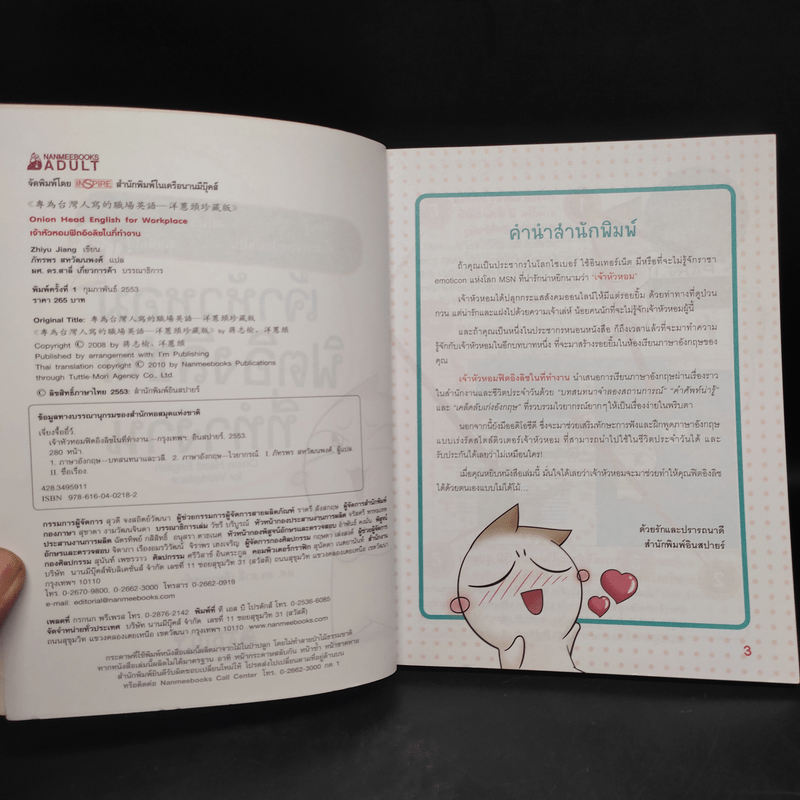 NANMEEBOOKS
ADULT
จัดพิมพ์โดย INSPIRE สำนักพิมพ์ในเครือนานมีบุ๊คส์
《專為台灣人寫的職場英語—洋蔥頭珍藏版》
Onion Head English for Workplace
เจ้าหัวหอมฟิตอิงลิชในที่ทำงาน
Zhiyu Jiang เขียน
ภัทรพร สหวัฒนพงศ์ แปล
ผศ. ดร.สาลี่ เกี่ยวการค้า บรรณาธิการ
พิมพ์ครั้งที่ 1 กุมภาพันธ์ 2553
ราคา 265 บาท
Original Title: 專為台灣人寫的職場英語—洋蔥頭珍藏版
《專為台灣人寫的職場英語—洋蔥頭珍藏版》 by 蔣志榆, 洋蔥頭
Copyright © 2008 by 蔣志榆, 洋蔥頭
Published by arrangement with I'm Publishing
Thai translation copyright © 2010 by Nanmeebooks Publications
through Tuttle-Mori Agency Co., Ltd.
© ลิขสิทธิ์ภาษาไทย 2553: สำนักพิมพ์อินสปายร์
ข้อมูลทางบรรณานุกรมของสำนักหอสมุดแห่งชาติ
เจียงจื้ออี๋ว์
เจ้าหัวหอมฟิตอิงลิชในที่ทำงาน.--กรุงเทพฯ: อินสปายร์, 2553
280 หน้า
1. ภาษาอังกฤษ--บทสนทนาและวลี 2. ภาษาอังกฤษ--ไวยากรณ์ I. ภัทรพร สหวัฒนพงศ์, ผู้แปล
II. ชื่อเรื่อง.
428.3495911
ISBN 978-616-04-0218-2
กรรมการผู้จัดการ สุวดี จงสถิตย์วัฒนา ผู้ช่วยกรรมการผู้จัดการสายผลิตภัณฑ์ ราตรี สังสกฤษ ผู้จัดการสำนักพิมพ์
บริษัท นานมีบุ๊คส์พับลิเคชั่นส์ จำกัด เลขที่ 11 ซอยสุขุมวิท 31 (สวัสดี) ถนนสุขุมวิท แขวงคลองเตยเหนือ เขตวัฒนา
กรุงเทพฯ 10110
โทร. 0-2670-9800, 0-2662-3000 โทรสาร 0-2662-0919
e-mail: editorial@nanmeebooks.com
เพลตที่ กรกนก พรีเพรส โทร. 0-2876-2142 พิมพ์ที่ ที เอส บี โปรดักส์ โทร. 0-2536-6085
จัดจำหน่ายทั่วประเทศ บริษัท นานมีบุ๊คส์ จำกัด เลขที่ 11 ซอยสุขุมวิท 31 (สวัสดี)
ถนนสุขุมวิท แขวงคลองเตยเหนือ เขตวัฒนา กรุงเทพฯ 10110 www.nanmeebooks.com
กระดาษที่ใช้พิมพ์หนังสือเล่มนี้ผลิตมาจากไม้ในป่าปลูก โดยไม่ทำลายป่าไม้ธรรมชาติ
หากหนังสือเล่มนี้ผลิตไม่ได้มาตรฐาน อาทิ หน้ากระดาษสลับกัน หน้าซ้ำ หน้าขาดหาย
สำนักพิมพ์ยินดีรับผิดชอบเปลี่ยนใหม่ให้ โปรดส่งไปเปลี่ยนตามที่อยู่ด้านบน
หรือติดต่อ Nanmeebooks Call Center โทร. 0-2662-3000 กด 1
คำนำสำนักพิมพ์
ถ้าคุณเป็นประชากรในโลกไซเบอร์ ใช้อินเทอร์เน็ต มีหรือที่จะไม่รู้จักราชา
emoticon แห่งโลก MSN ที่น่ารักน่าหยิกนามว่า "เจ้าหัวหอม"
เจ้าหัวหอมได้ปลุกกระแสสังคมออนไลน์ให้มีแต่รอยยิ้ม ด้วยท่าทางที่ดูป่วน
กวน แต่น่ารักและแฝงไปด้วยความเจ้าเล่ห์ น้อยคนนักที่จะไม่รู้จักเจ้าหัวหอมผู้นี้
และถ้าคุณเป็นหนึ่งในประชากรหนอนหนังสือ ก็ถึงเวลาแล้วที่จะมาทำความ
รู้จักกับเจ้าหัวหอมในอีกบทบาทหนึ่ง ที่จะมาสร้างรอยยิ้มในห้องเรียนภาษาอังกฤษของ
คุณ
เจ้าหัวหอมฟิตอิงลิชในที่ทำงาน นำเสนอการเรียนภาษาอังกฤษผ่านเรื่องราว
ในสำนักงานและชีวิตประจำวันด้วย "บทสนทนาจำลองสถานการณ์" "คำศัพท์น่ารู้"
และ "เคล็ดลับเก่งอังกฤษ" ที่รวบรวมไวยากรณ์ยากๆ ให้เป็นเรื่องง่ายในพริบตา
นอกจากนี้ยังมีออดิโอซีดี ซึ่งจะมาช่วยเสริมทักษะการฟังและฝึกพูดภาษาอังกฤษ
แบบเร่งรัดสไตล์ติวเตอร์เจ้าหัวหอม ที่สามารถนำไปใช้ในชีวิตประจำวันได้ และ
รับประกันได้เลยว่าไม่เหมือนใคร!
เมื่อคุณหยิบหนังสือเล่มนี้ มั่นใจได้เลยว่าเจ้าหัวหอมจะมาช่วยทำให้คุณฟิตอิงลิช
ได้ด้วยตนเองแบบไม่ได้โม้...
ด้วยรักและปรารถนาดี
สำนักพิมพ์อินสปายร์
3